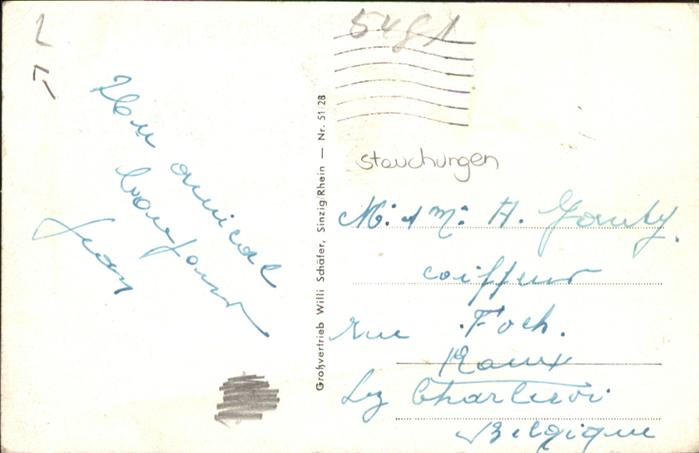 5481
Un amical
bonjour
Jean
Großvertrieb Willi Schäfer, Sinzig/Rhein — Nr. 51/28
stauchungen
M. & Mme A.
coiffeur
rue Foch.
Roux
Lez Charleroi
Belgique